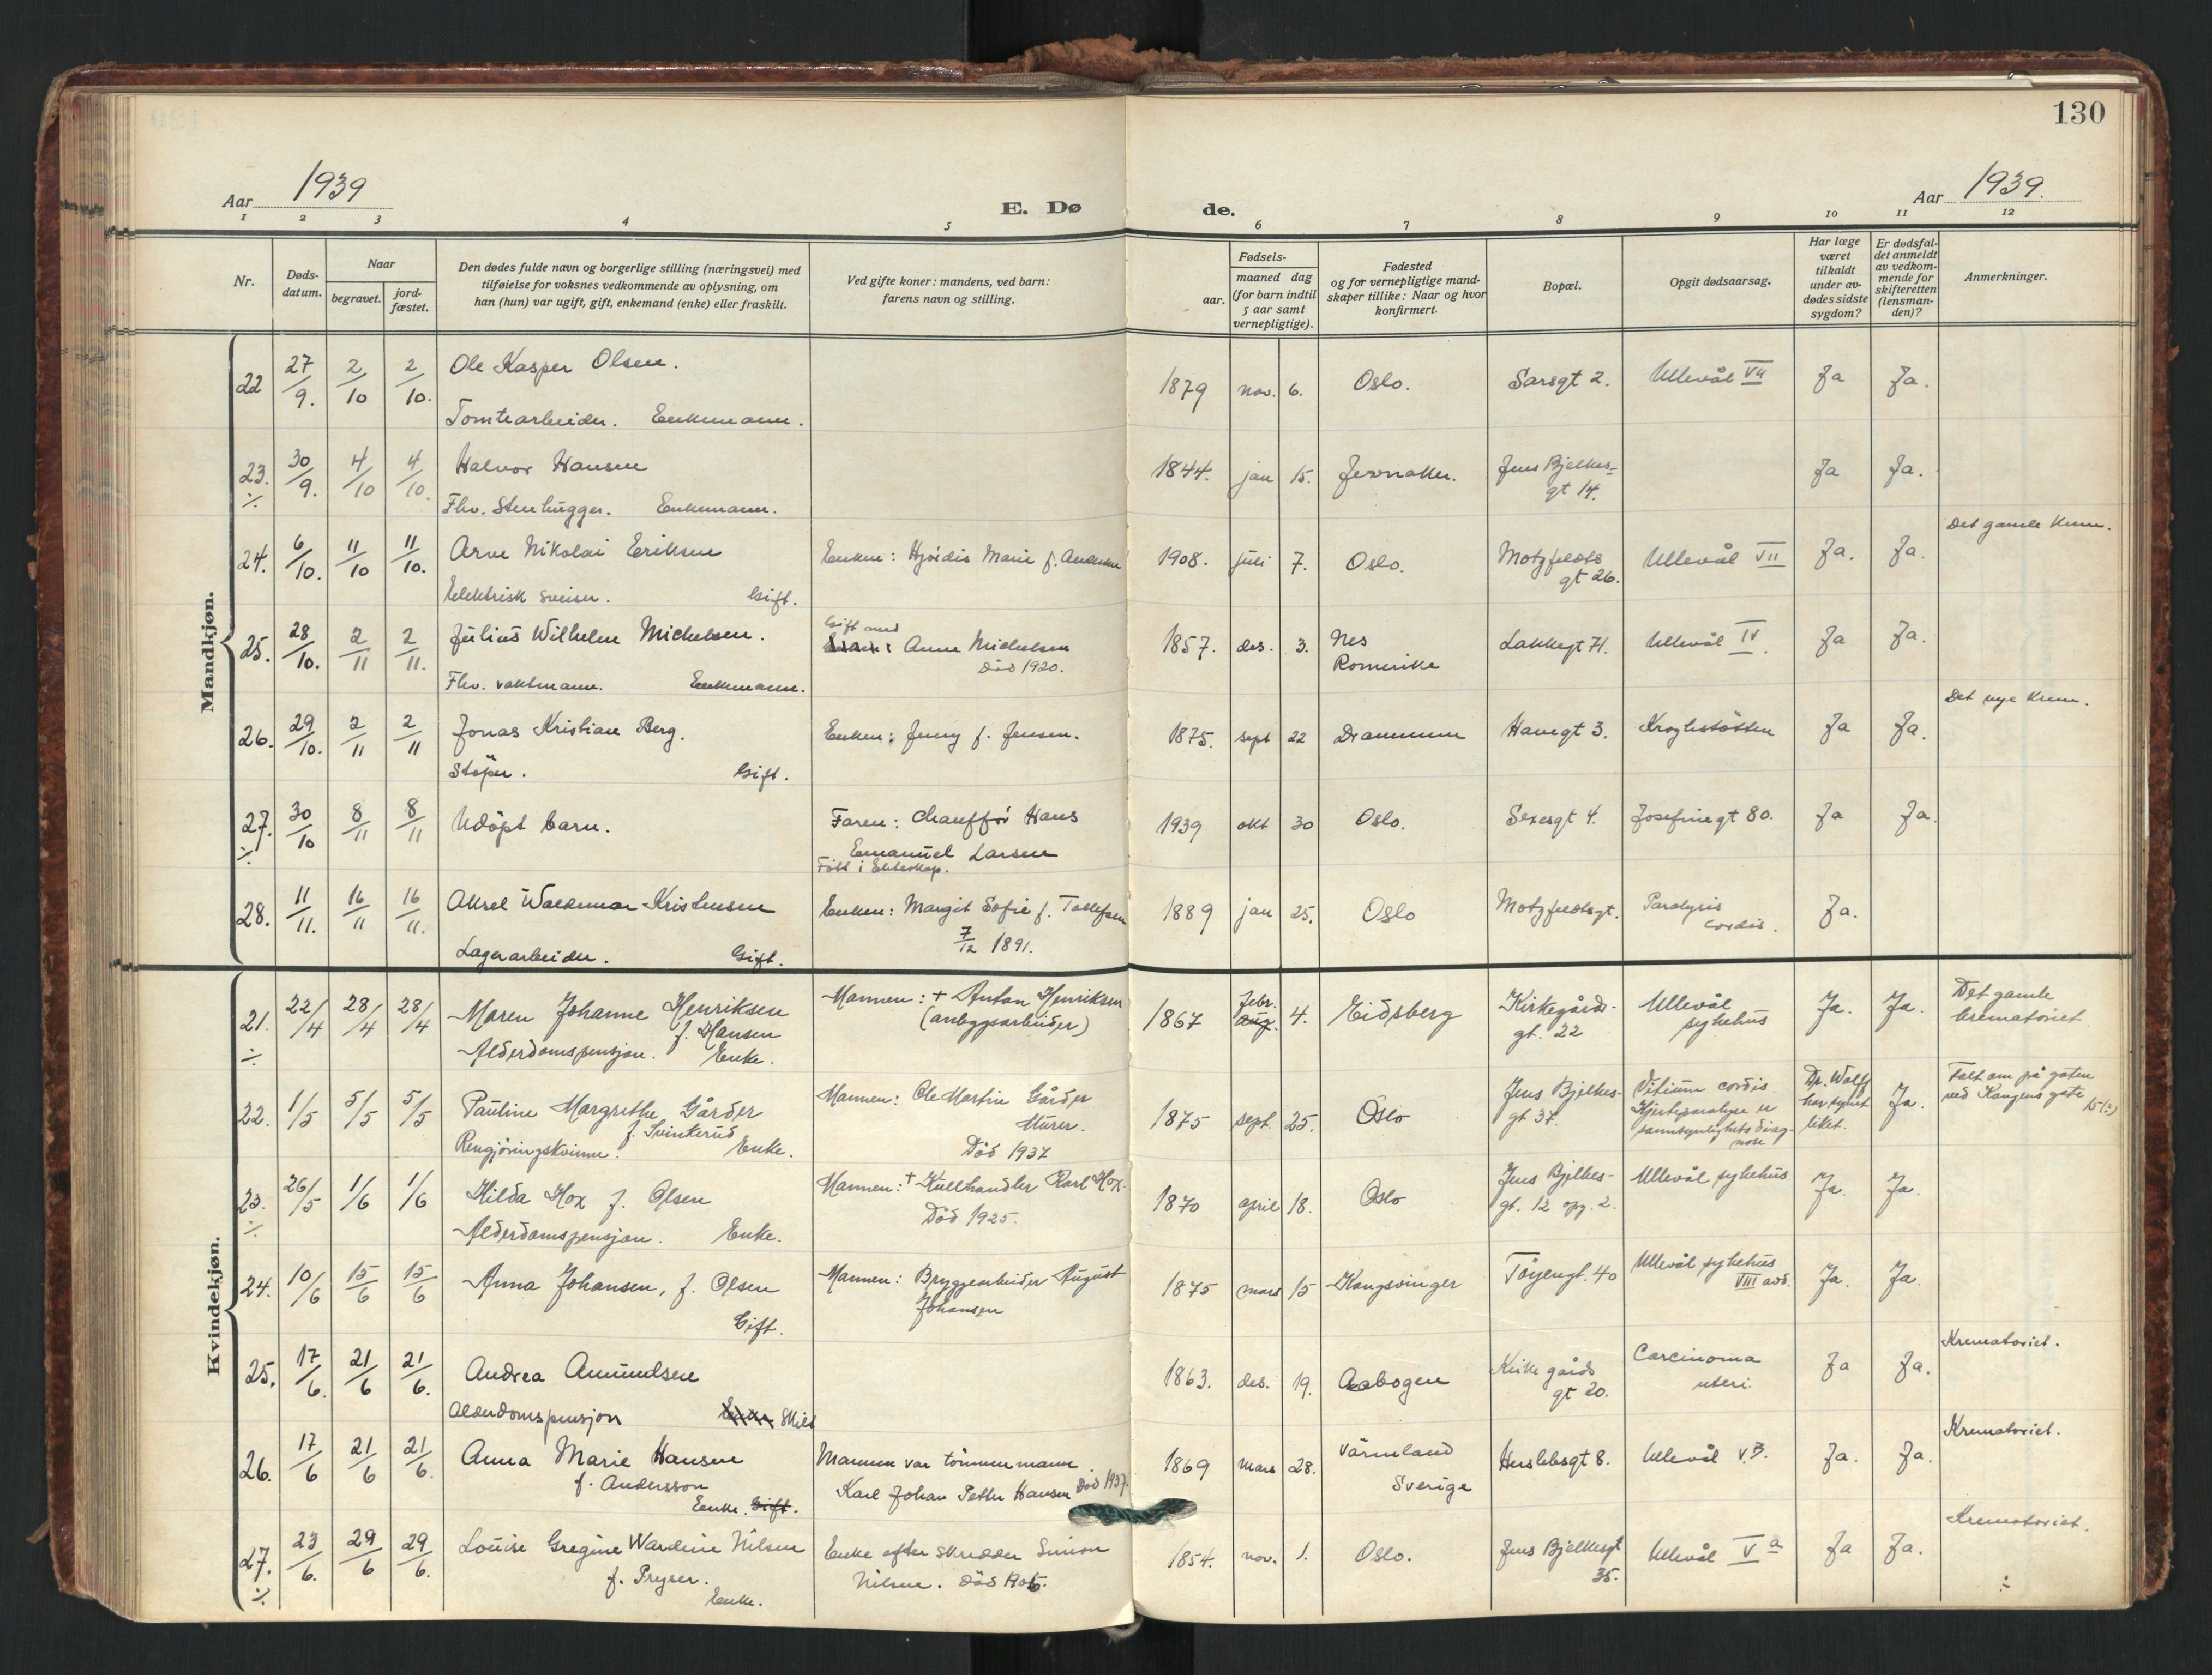 130
Aar 1939
E. Dø
de.
Aar 1939.
1 2 3 4 5 6 7 8 9 10 11 12
Nr.
Døds-datum.
Naar
begravet.
jord-fæstet.
Den dødes fulde navn og borgerlige stilling (næringsvei) med
tilføielse for voksnes vedkommende av oplysning, om
han (hun) var ugift, gift, enkemand (enke) eller fraskilt.
Ved gifte koner: mandens, ved barn:
farens navn og stilling.
Fødsels-
aar.
maaned dag
(for barn indtil
5 aar samt
vernepligtige).
Fødested
og for vernepligtige mand-
skaper tillike: Naar og hvor
konfirmert.
Bopæl.
Opgit dødsaarsag.
Har læge
været
tilkaldt
under av-
dødes sidste
sygdom?
Er dødsfal-
det anmeldt
av vedkom-
mende for
skifteretten
(lensman-
den)?
Anmerkninger.
Mandkjøn.
22 27/9. 2/10 2/10. Ole Kasper Olsen. 1879 nov. 6. Oslo. Sarsgt 2. Ullevål VII Ja Ja.
Tomtearbeider. Enkemann.
23. ÷ 30/9. 4/10 4/10. Halvor Hansen 1844. jan 15. Jevnaker. Jens Bjelkes-
gt 14. Ja Ja.
Fhv. Stenhugger. Enkemann.
24. 6/10. 11/10 11/10. Arve Nikolai Eriksen Enken: Hjördis Marie f. Andersen 1908. juli 7. Oslo. Motzfeldts
gt 26. Ullevål VII Ja. Ja. Det gamle Krem.
Elektrisk sveiser. Gift.
25. 28/10. 2/11 2/11. Julius Wilhelm Michelsen. Gift med
Anne Michelsen
Död 1920. 1857. des. 3. Nes
Romerike Lakkegt 71. Ullevål IV. Ja Ja.
Fhv. vaktmann. Enkemann.
26. 29/10. 2/11 2/11 Jonas Kristian Berg. Enken: Jenny f. Jensen. 1875. sept 22 Drammen Havegt 3. Kroghstötten Ja Ja. Det nye Krem.
Stöper. Gift.
27. ÷ 30/10 8/11 8/11 Udöpt barn. Faren: Chauffør Hans
Emanuel Larsen
Födt i Ekteskap. 1939 okt 30 Oslo. Sexesgt 4. Josefinegt 80. Ja Ja.
28. 11/11. 16/11 16/11. Aksel Waldemar Kristensen Enken: Margit Sofie f. Tollefsen
7/12 1891. 1889 jan 25. Oslo Motzfeldtsgt. Paralysis
cordis. Ja.
Lagerarbeider. Gift.
Kvindekjøn.
21. ÷ 22/4 28/4 28/4 Maren Johanne Henriksen
f. Hansen Mannen: + Anton Henriksen
(anleggsarbeider) 1867 febr.
aug. 4. Eidsberg Kirkegårds-
gt. 22 Ullevål
sykehus Ja. Ja. Det gamle
krematoriet
Alderdomspensjon. Enke.
22. 1/5 5/5 5/5 Pauline Margrethe Gårder
f. Svinkerud Mannen: Ole Martin Gårder
Murer.
Död 1937 1875 sept. 25. Oslo Jens Bjelkes-
gt 37. Vitium cordis
Hjerteparalyse er
sannsynlighets diag-
nose Dr. Wolff
har synet
liket. Ja. Falt om på gaten
ved Kongens gate
15 (?)
Rengjøringskvinne. Enke.
23. ÷ 26/5 1/6 1/6 Hilda Hox f. Olsen Mannen: + Kullhandler Karl Hox.
Död 1925. 1870 april 18. Oslo Jens Bjelkes-
gt. 12 opg. 2. Ullevål sykehus Ja. Ja.
Alderdomspensjon. Enke.
24. 10/6 15/6 15/6 Anna Johansen, f. Olsen Mannen: Bryggearbeider August
Johansen 1875 mars 15 Kongsvinger Töyengt. 40 Ullevål sykehus
VIII avd. Ja. Ja.
Gift.
25. 17/6. 21/6 21/6. Andrea Amundsen 1863. des. 19. Aabogen Kirkegårds
gt 20. Carcinoma
uteri. Ja Ja. Krematoriet.
Alderdomspensjon Enke Skilt
26. 17/6 21/6 21/6. Anna Marie Hansen
f. Andersson Mannen var tömmermann
Karl Johan Petter Hansen Död 1937. 1869 mars 28. Värmland
Sverige Herslebsgt 8. Ullevål V.B. Ja. Ja. Krematoriet.
Enke. Gift.
27. ÷ 23/6. 29/6 29/6. Louise Gregine Wardine Nilsen
f. Pryser. Enke efter skredder Simon
Nilsen. Död 1854. nov. 1. Oslo. Jens Bjelkesgt
35. Ullevål V a Ja Ja. Krematoriet.
÷
Enke.